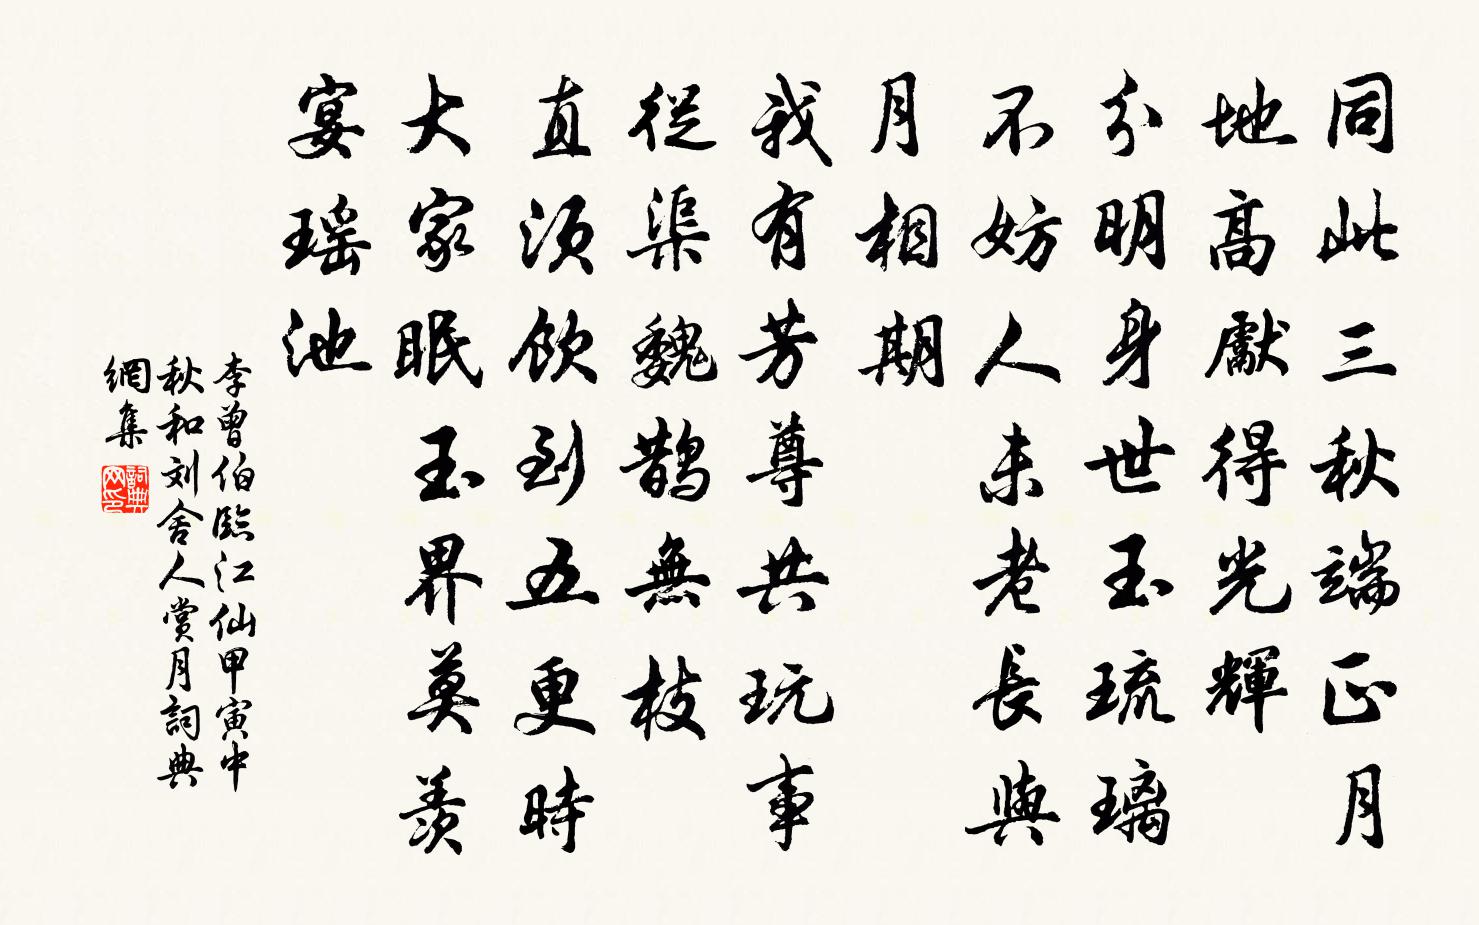 同此三秋端正月
地高獻得光輝
分明身世玉琉璃
不妨人未老長與
月相期
我有芳尊共玩事
從渠魏鵲無枝
直須飲到五更時
大家眠玉界莫羨
宴瑶池
李曾伯臨江仙甲寅中
秋和刘舍人赏月詞典
網集
詞典
网印